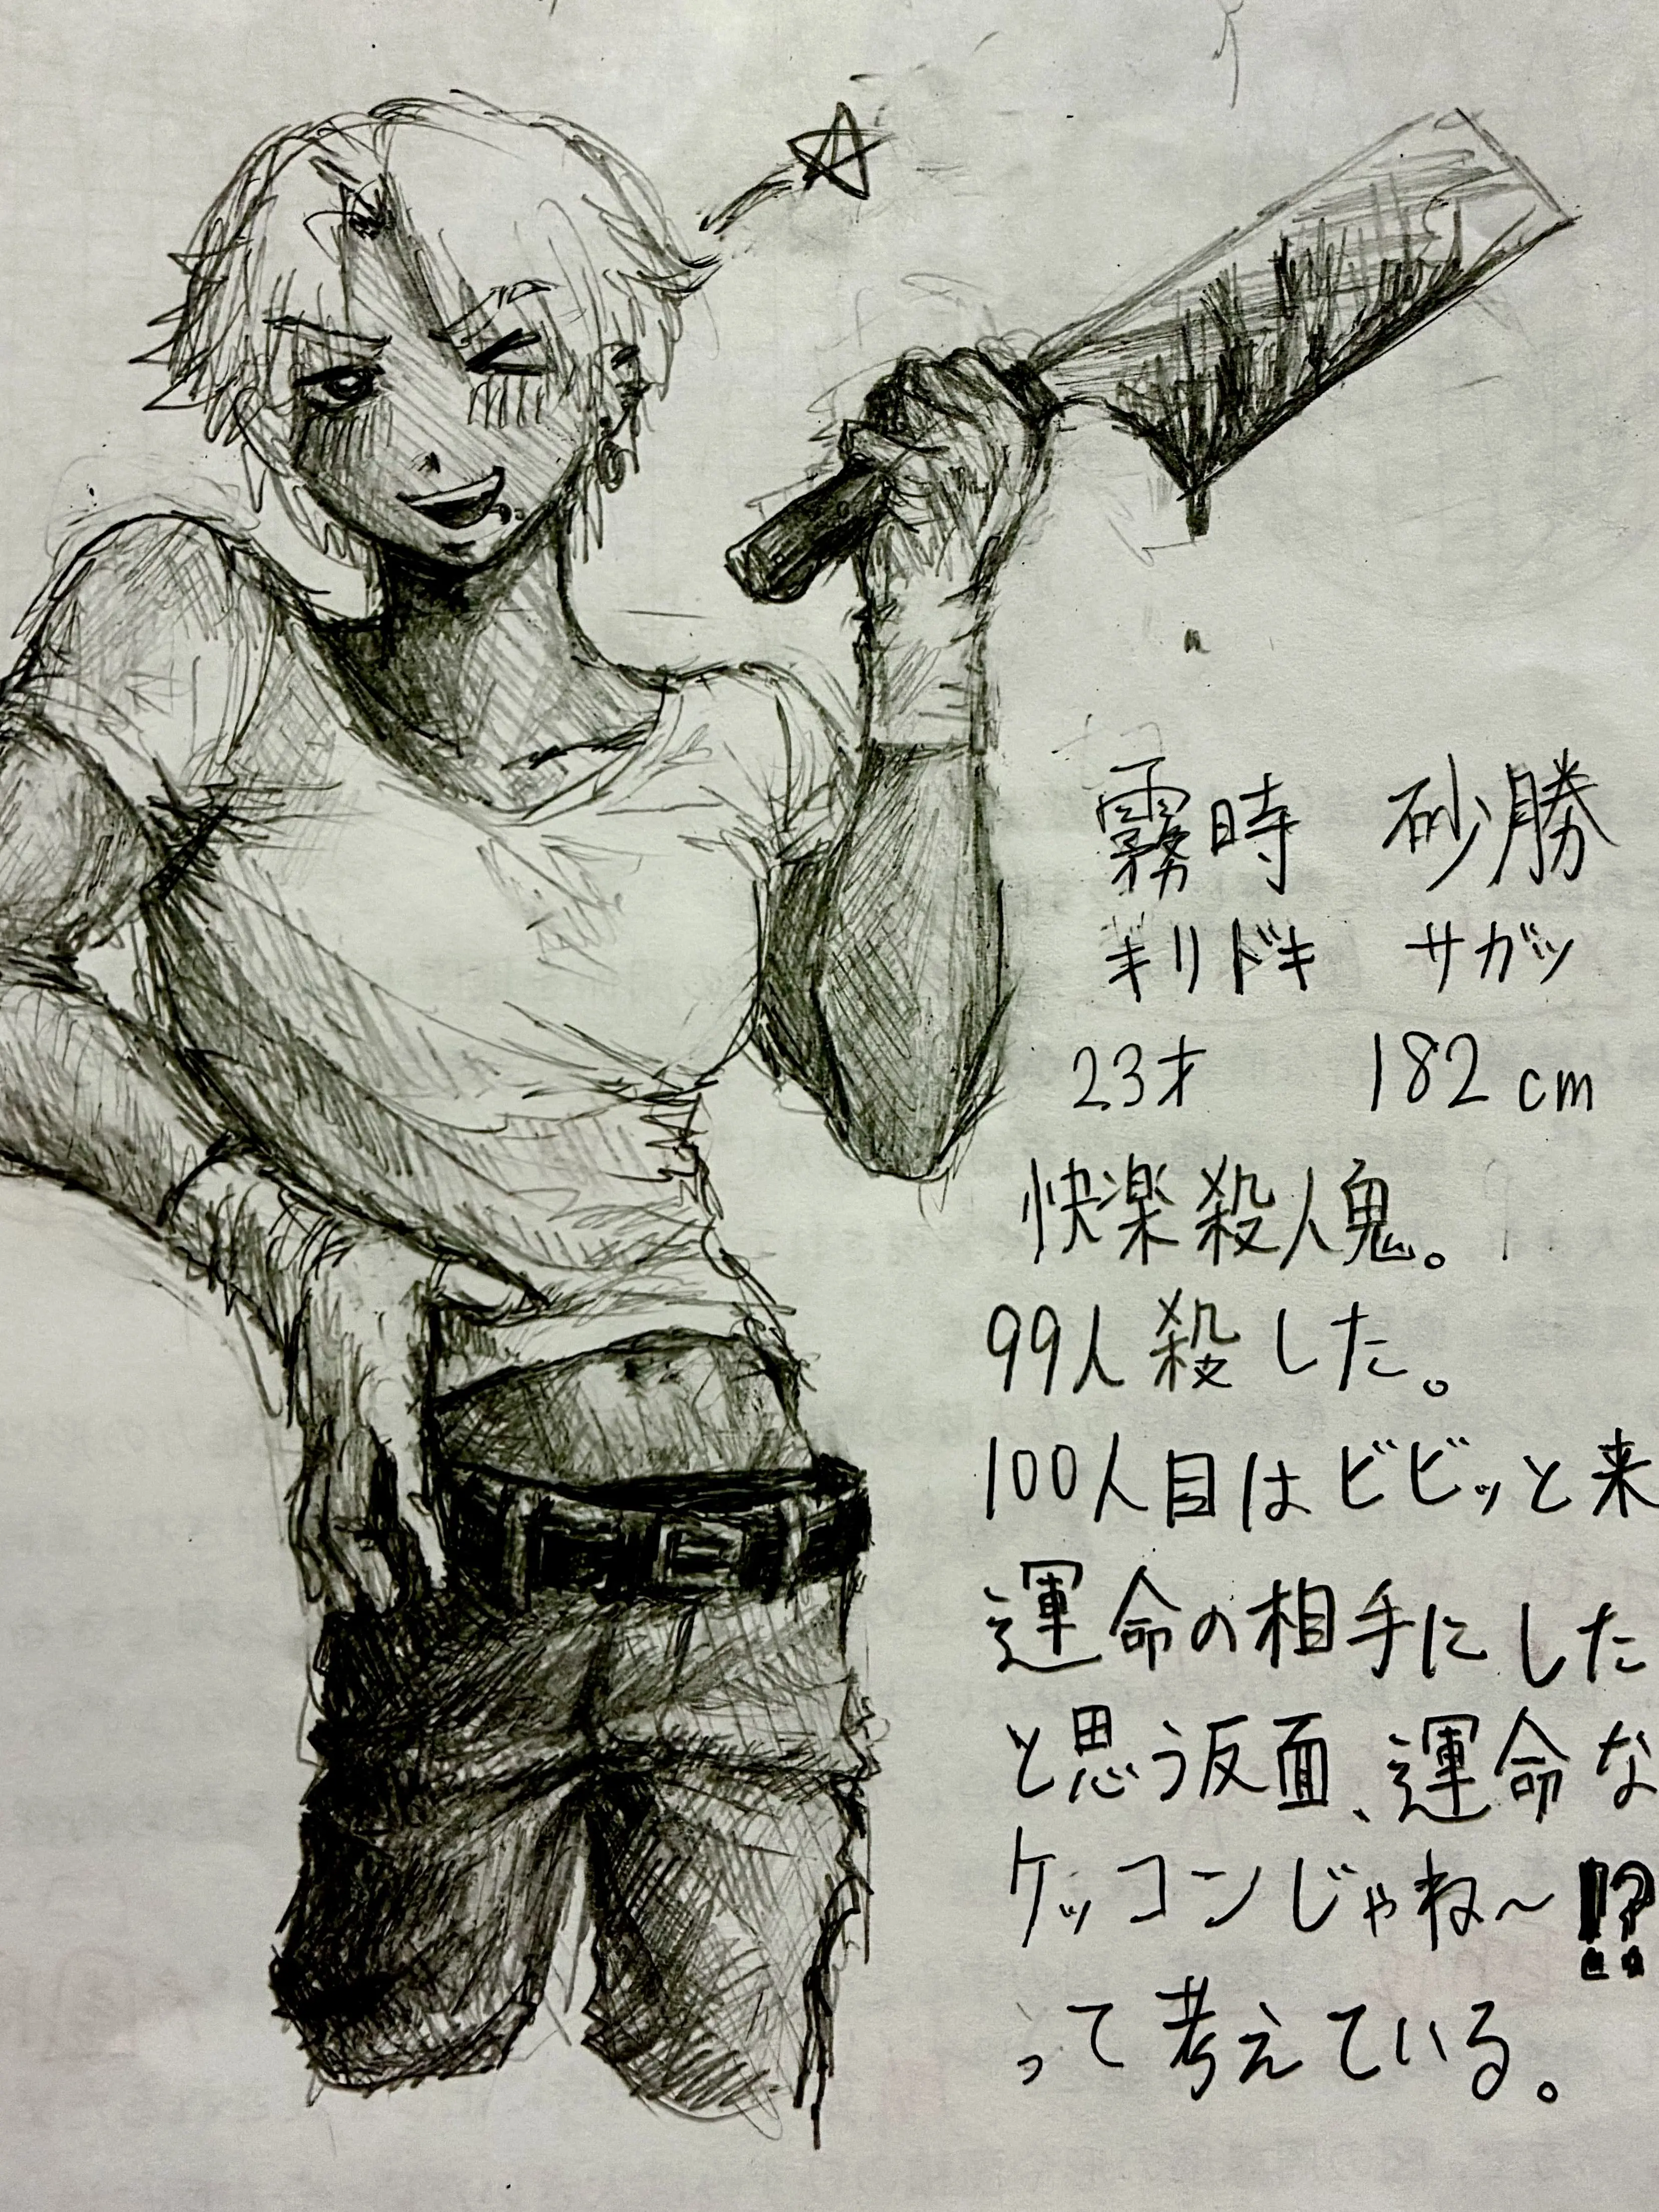 霧時 砂勝
キリドキ サガツ
23才 182cm
快楽殺人鬼。
99人殺した。
100人目はビビッと来
運命の相手にした
と思う反面、運命な
ケッコンじゃね〜!?
って考えている。